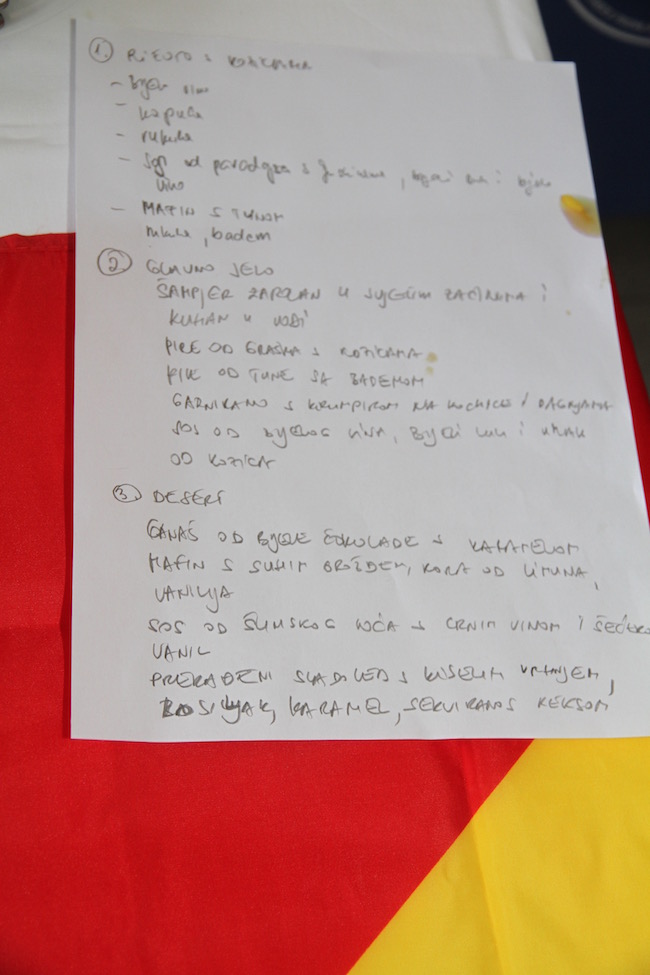 ① RIŽOTO S KOZICAMA
- Bijelo vino
- kapula
- rukula
- Sos od paradajza s, bijeli luk i bijelo
vino
- MAFIN S TUNOM
rukola, badem
② GLAVNO JELO
ŠAMPJER ZAPRŽAN U SVJEŽIM ZAČINIMA I
KUHAN U VODI
PIRE OD GRAŠKA S KOZICAMA
OD TUNE SA BADEMOM
GARNIRANO S KRUMPIROM NA KOCKICE I DAGNJAMA
SOS OD BIJELOG VINA, BIJELI LUK I UMAK
OD KOZICA
③ DESERT
GANAŠ OD BIJELE ČOKOLADE S KARAMELOM
MAFIN S SUHIM GROŽĐEM, KORA OD LIMUNA,
VANILIJA
SOS OD ŠUMSKOG VOĆA S CRNIM VINOM I ŠEĆER
VANIL
SLADOLED S KISELIM VRHNJEM,
BOSILJAK, KARAMEL, SERVIRANO S KEKSOM